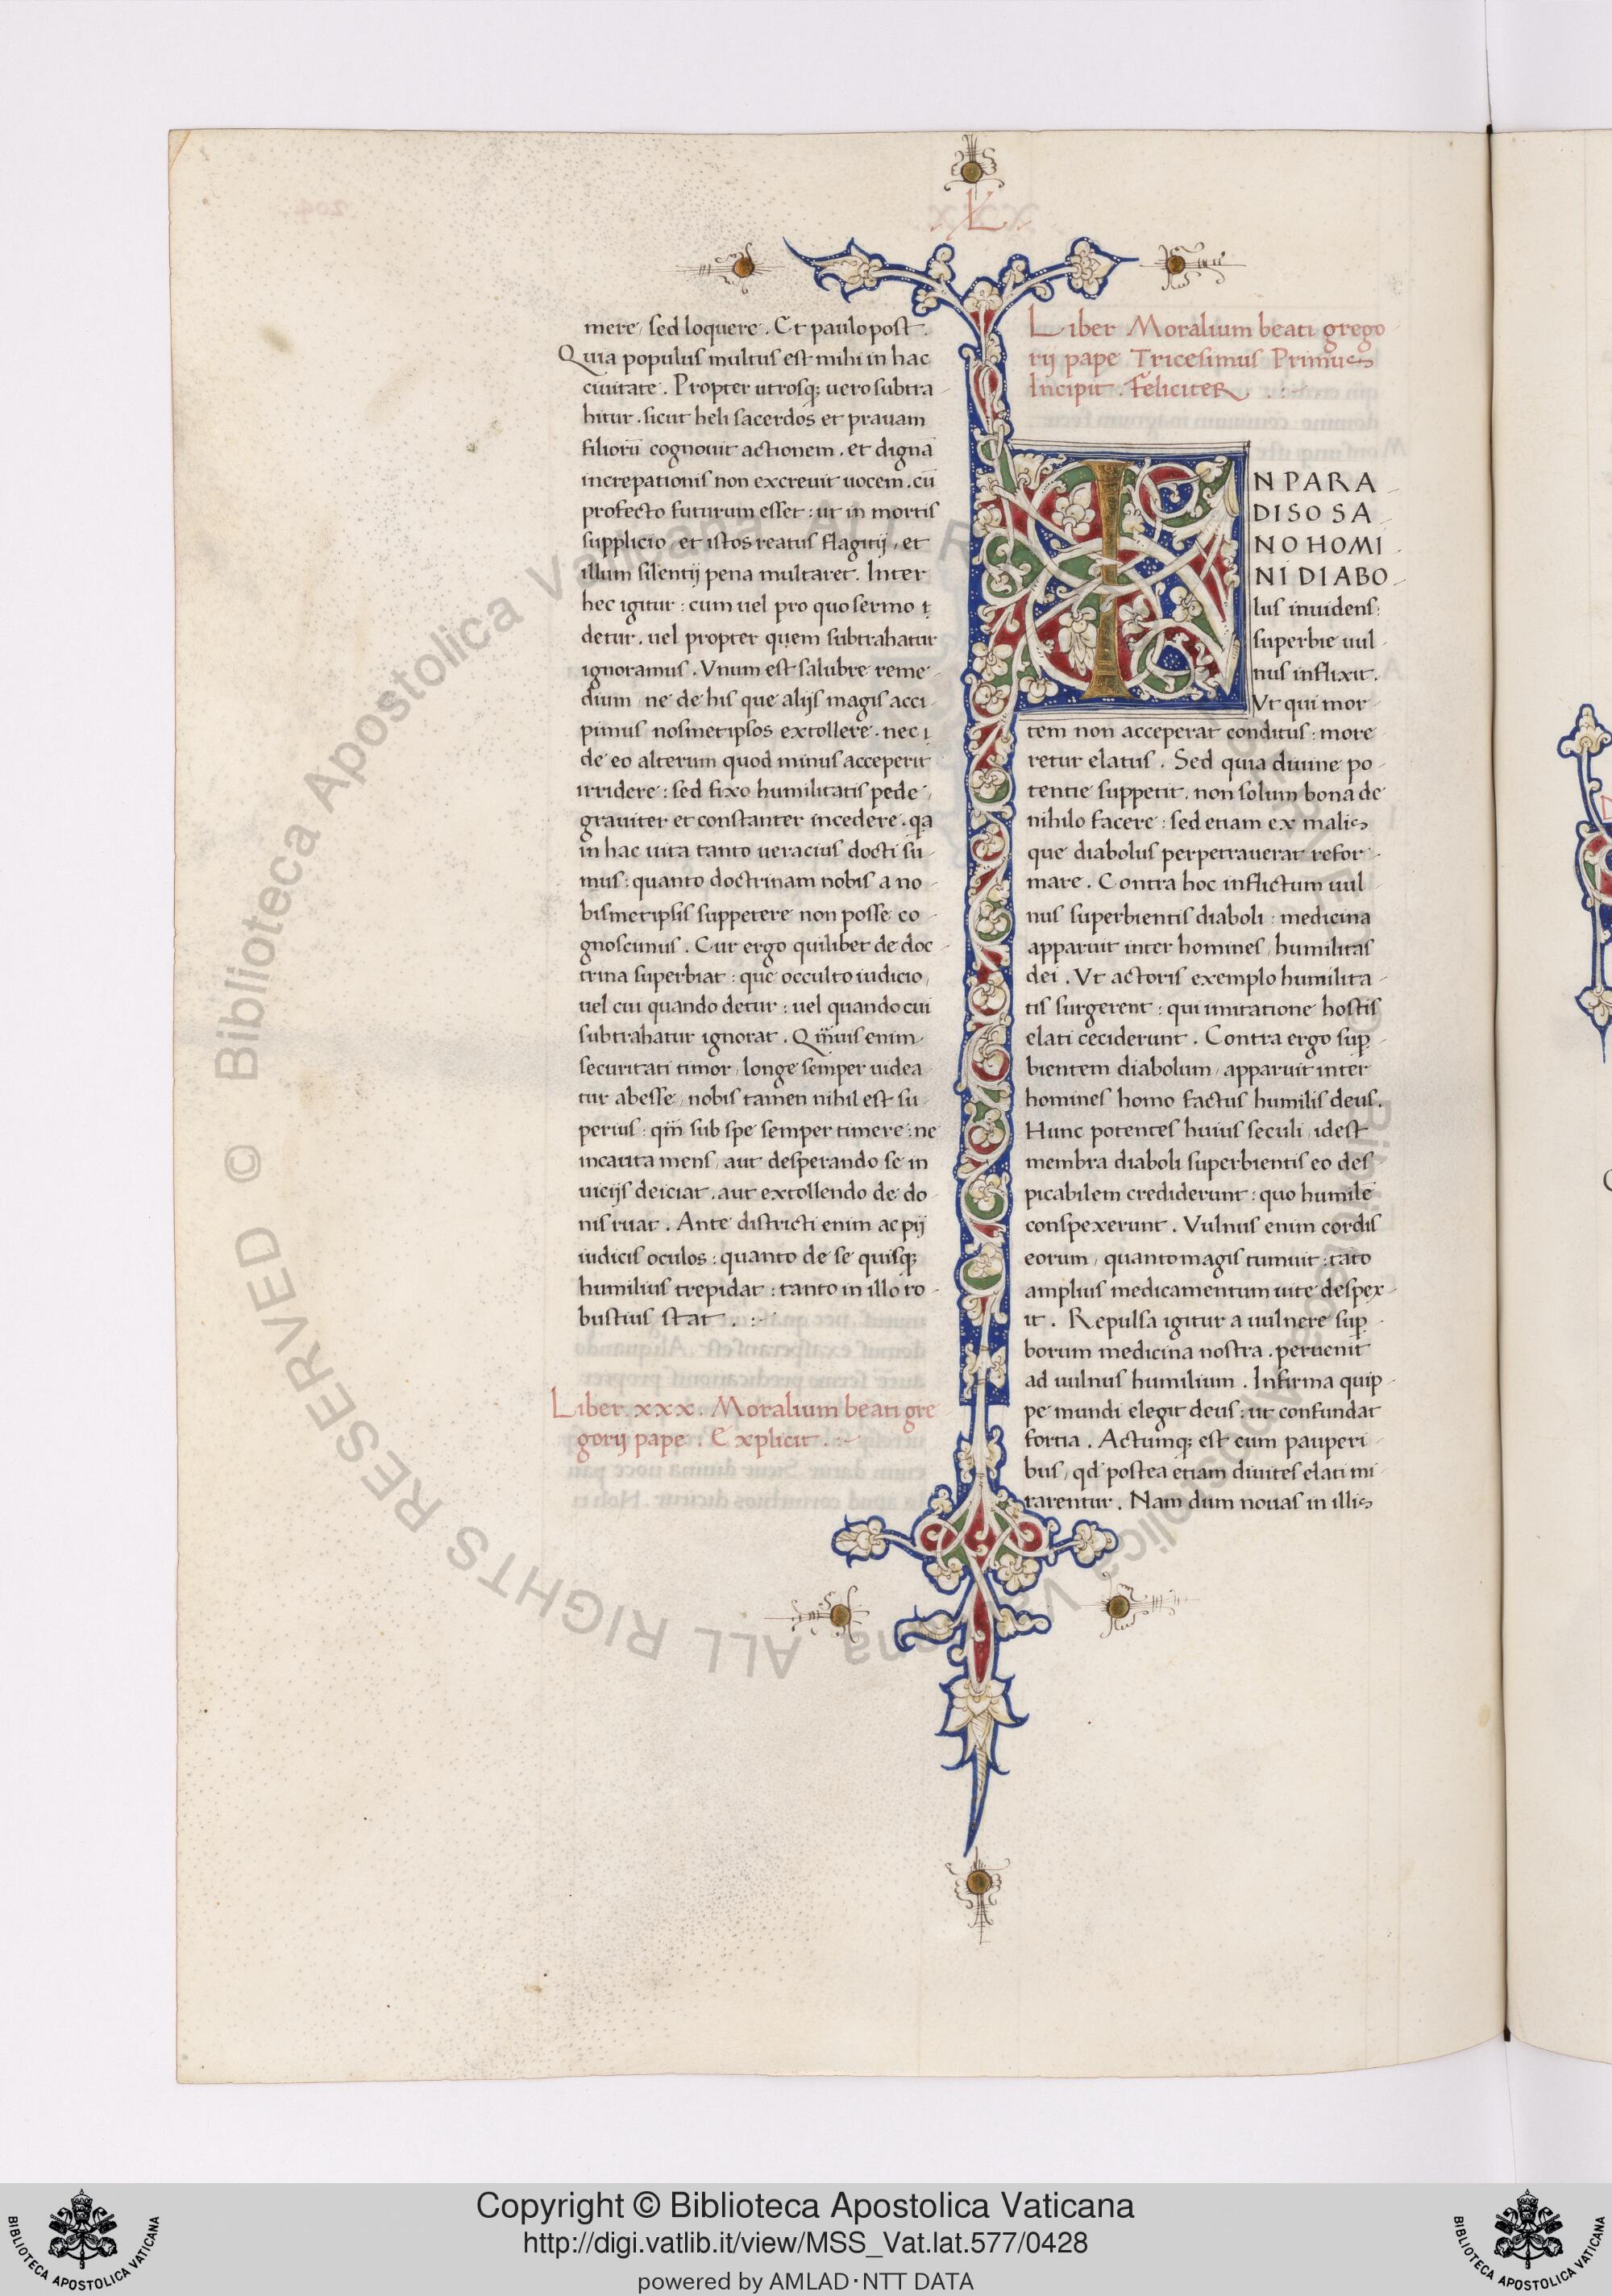 L
mere, sed loquere. Et paulo post.
Quia populus multus est mihi in hac
ciuitate. Propter utrosq; uero subtra
hitur. sicut heli sacerdos et prauam
filiorū cognouit actionem. et dignā
increpationis non excreuit uocem. cū
profecto futurum esset: ut in mortis
supplicio, et istos reatus flagitij, et
illum silentij pena multaret. Inter
hec igitur: cum uel pro quo sermo t
detur. uel propter quem subtrahatur
ignoramus. Vnum est salubre reme
dium, ne de his que alijs magis acci
pimus nosmetipsos extollere. nec i
de eo alterum quod minus acceperit
irridere: sed fixo humilitatis pede,
grauiter et constanter incedere. qa
in hac uita tanto ueracius docti su
mus: quanto doctrinam nobis a no
bismetipsis suppetere non posse co
gnoscimus. Cur ergo quilibet de doc
trina superbiat: que occulto iudicio,
uel cui quando detur: uel quando cui
subtrahatur ignorat. Qm̄uis enim
securitati timor, longe semper uidea
tur abesse, nobis tamen nihil est su
perius: qm̄ sub spe semper timere: ne
incauta mens, aut desperando se in
uicijs deiciat. aut extollendo de do
nis ruat. Ante districti enim ac pij
iudicis oculos: quanto de se quisq;
humilius trepidat: tanto in illo ro
bustius stat. :-
Liber. xxx. Moralium beati gre
gorij pape. Explicit. :-
Liber Moralium beati grego
rij pape Tricesimus Primus
Incipit. Feliciter. :-
IN PARA
DISO SA
NO HOMI
NI DIABO
lus inuidens:
superbie uul
nus inflixit.
Vt qui mor
tem non acceperat conditus: more
retur elatus. Sed quia diuine po
tentie suppetit. non solum bona de
nihilo facere: sed etiam ex malis
que diabolus perpetrauerat refor
mare. Contra hoc inflictum uul
nus superbientis diaboli: medicina
apparuit inter homines, humilitas
dei. Vt actoris exemplo humilita
tis surgerent: qui imitatione hostis
elati ceciderunt. Contra ergo sup
bientem diabolum, apparuit inter
homines homo factus humilis deus.
Hunc potentes huius seculi, idest
membra diaboli superbientis eo des
picabilem crediderunt: quo humilē
conspexerunt. Vulnus enim cordis
eorum, quanto magis tumuit: tāto
amplius medicamentum uite despex
it. Repulsa igitur a uulnere sup
borum medicina nostra. peruenit
ad uulnus humilium. Infirma quip
pe mundi elegit deus: ut confundat
fortia. Actumq; est cum pauperi
bus, qd postea etiam diuites elati mi
rarentur. Nam dum nouas in illis
© Biblioteca Apostolica Vaticana ALL RIGHTS RESERVED
Copyright © Biblioteca Apostolica Vaticana
http://digi.vatlib.it/view/MSS_Vat.lat.577/0428
powered by AMLAD·NTT DATA
BIBLIOTECA APOSTOLICA VATICANA
BIBLIOTECA APOSTOLICA VATICANA